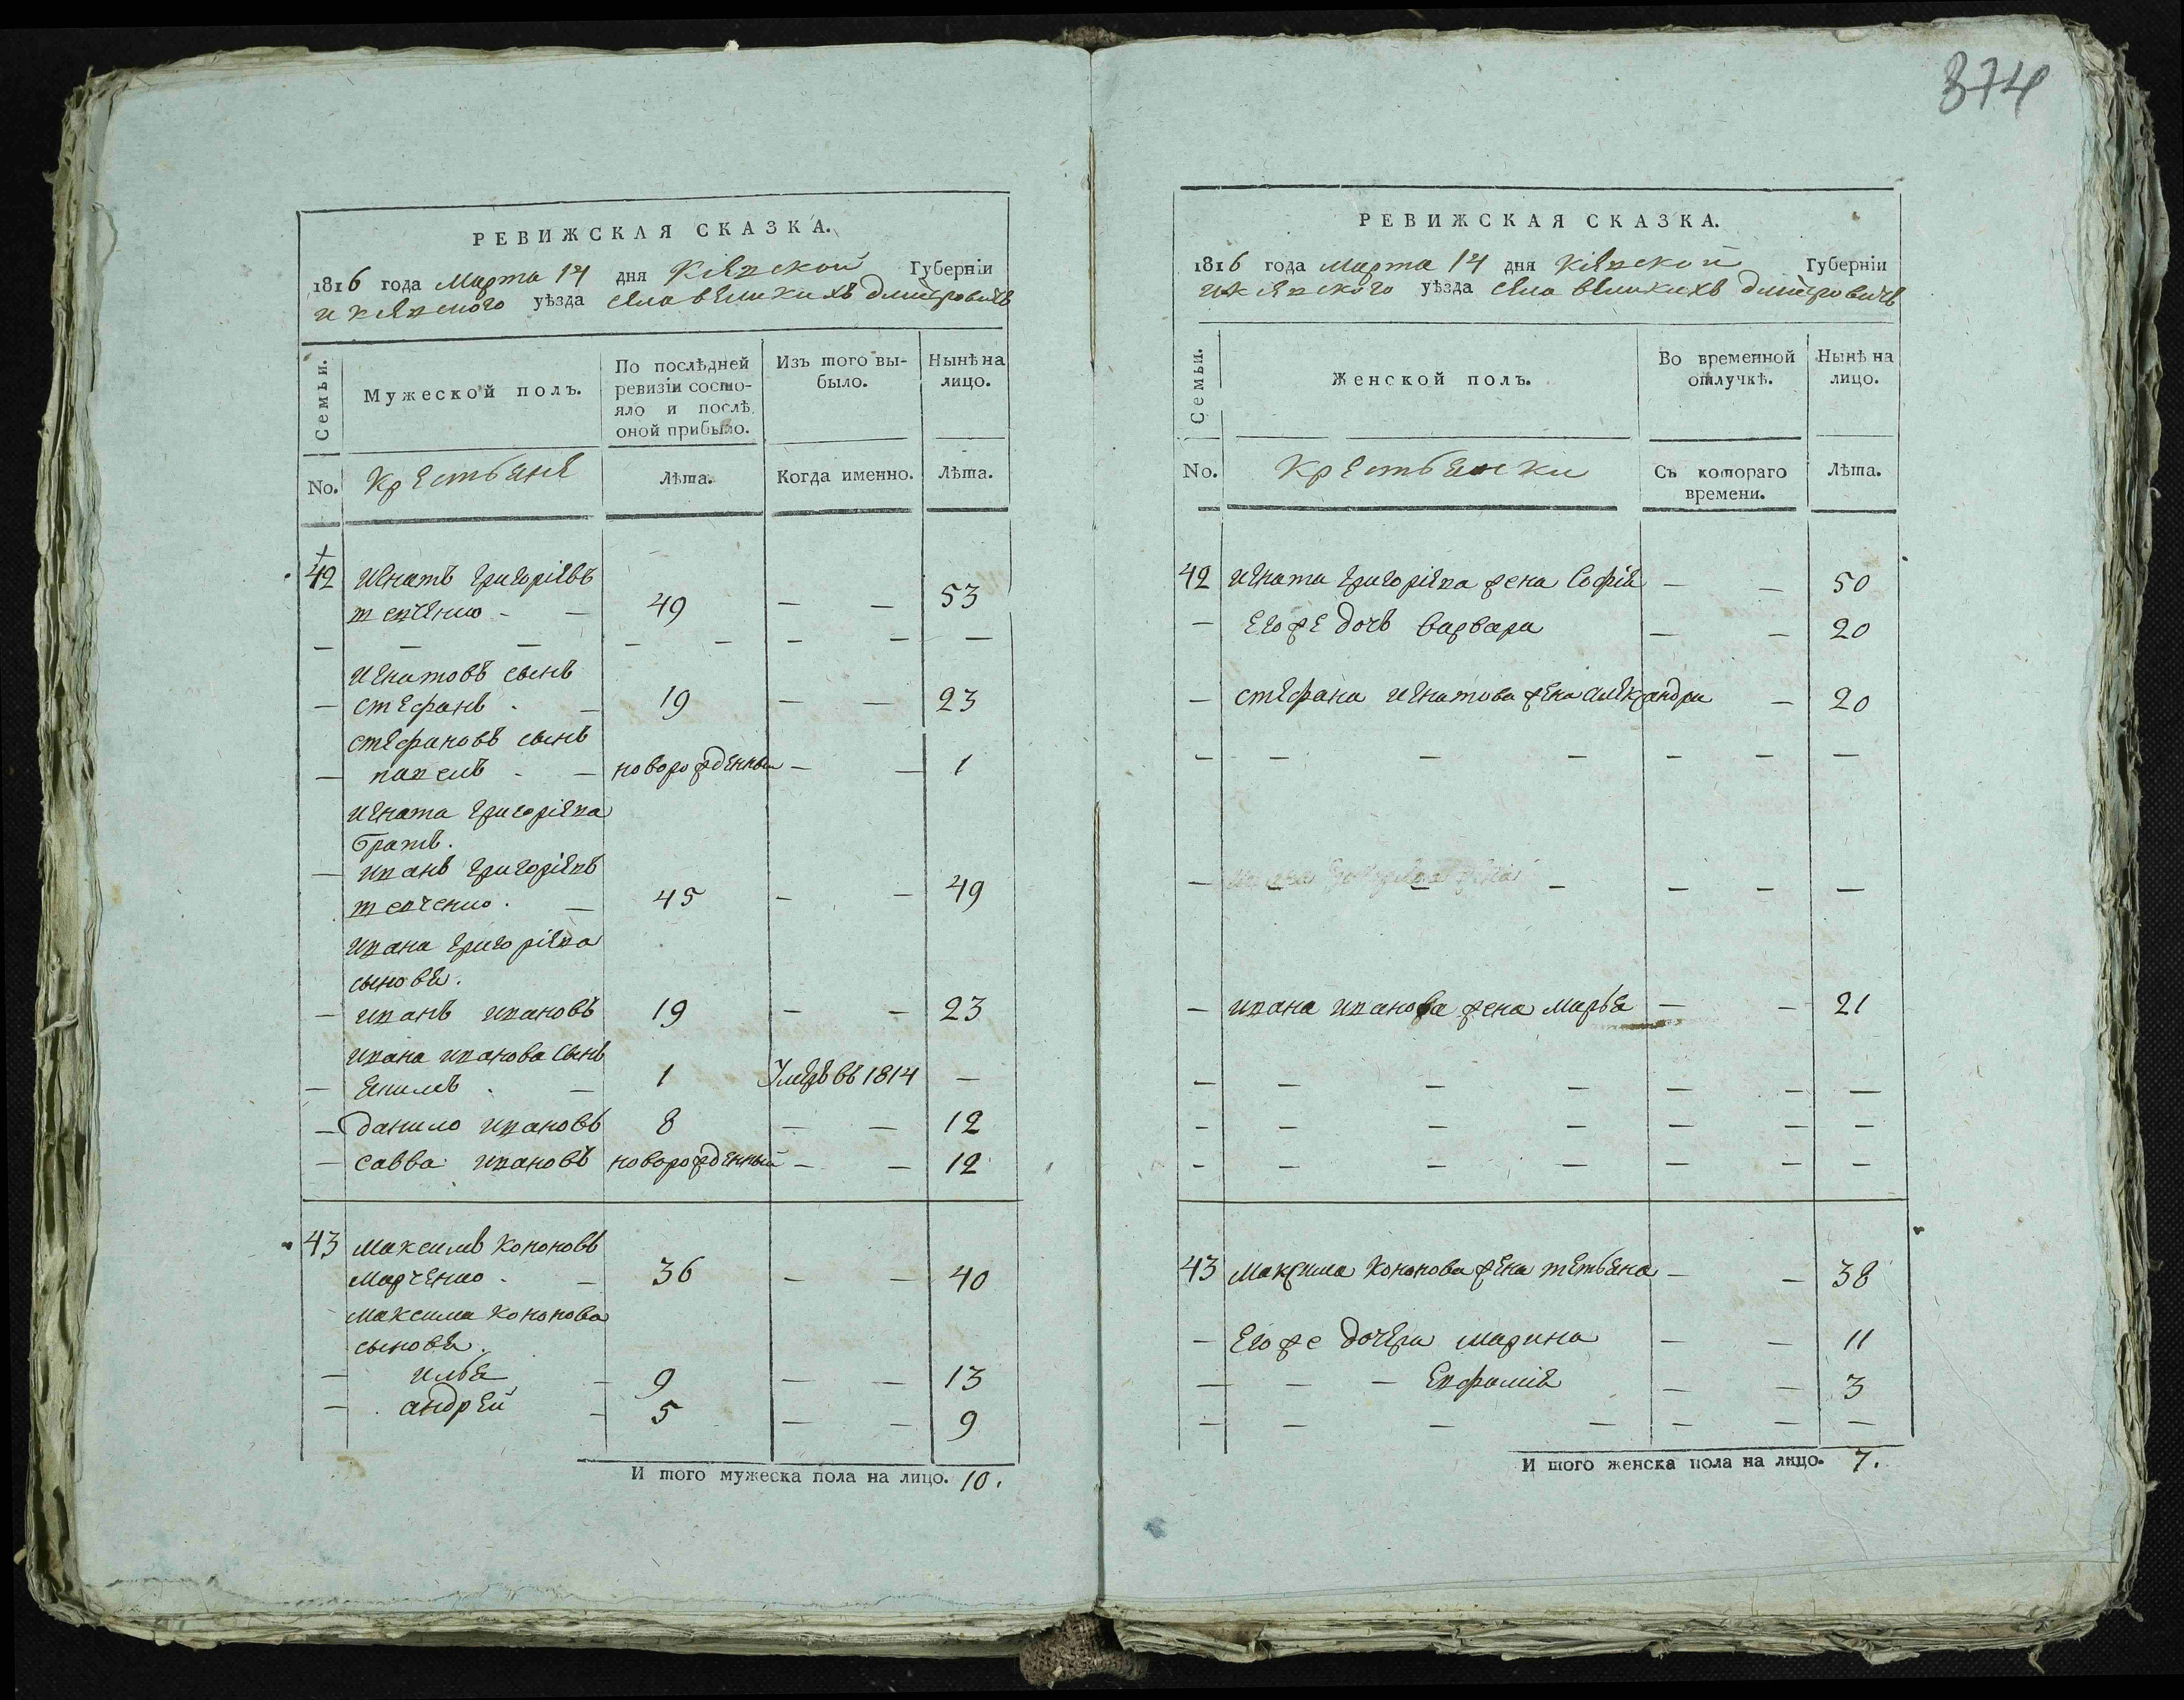 374
РЕВИЖСКАЯ СКАЗКА.
1816 года Марта 14 дня Кіевской Губерніи
и кіевского уѣзда села великихъ дмитровичъ
Семьи.
Мужеской полъ.
По послѣдней ревизіи состо-
яло и послѣ
оной прибыло.
Изъ того вы-
было.
Нынѣ на
лицо.
No. Крестьяне Лѣта. Когда именно. Лѣта.
42 Игнатъ григоріевъ
49 — — 53
— — — — — — — —
игнатовъ сынъ
— стефанъ - — 19 — — 23
стефановъ сынъ
— павелъ - — новорожденный — — 1
игната григоріева
братъ.
— иванъ григоріевъ
45 — — 49
ивана григоріева
сыновья.
— иванъ ивановъ 19 — — 23
ивана иванова сынъ
— - — 1 Умеръ въ 1814 —
— данило ивановъ 8 — — 12
— савва ивановъ новорожденный — — 12
43 Максимъ Кононовъ
Марченко - — 36 — — 40
Максима Кононова
сыновья.
— илья — 9 — — 13
— андрей — 5 — — 9
И того мужеска пола на лицо. 10.
РЕВИЖСКАЯ СКАЗКА.
1816 года Марта 14 дня Кіевской Губерніи
и кіевского уѣзда села великихъ дмитровичъ
Семьи.
Женской полъ.
Во временной
отлучкѣ.
Нынѣ на
лицо.
No. Крестьянки Съ котораго
времени. Лѣта.
42 игната григоріева жена Софія — — 50
— его же дочь варвара — — 20
— стефана игнатова жена александра — 20
— — — — — — —
— — — — — —
— ивана иванова жена марья — — 21
— — — — — — —
— — — — — — —
— — — — — — —
43 Максима Кононова жена тетьяна — — 38
— Его же дочери марина — — 11
— — — Евфимія — — 3
— — — — — — —
И того женска пола на лицо. 7.